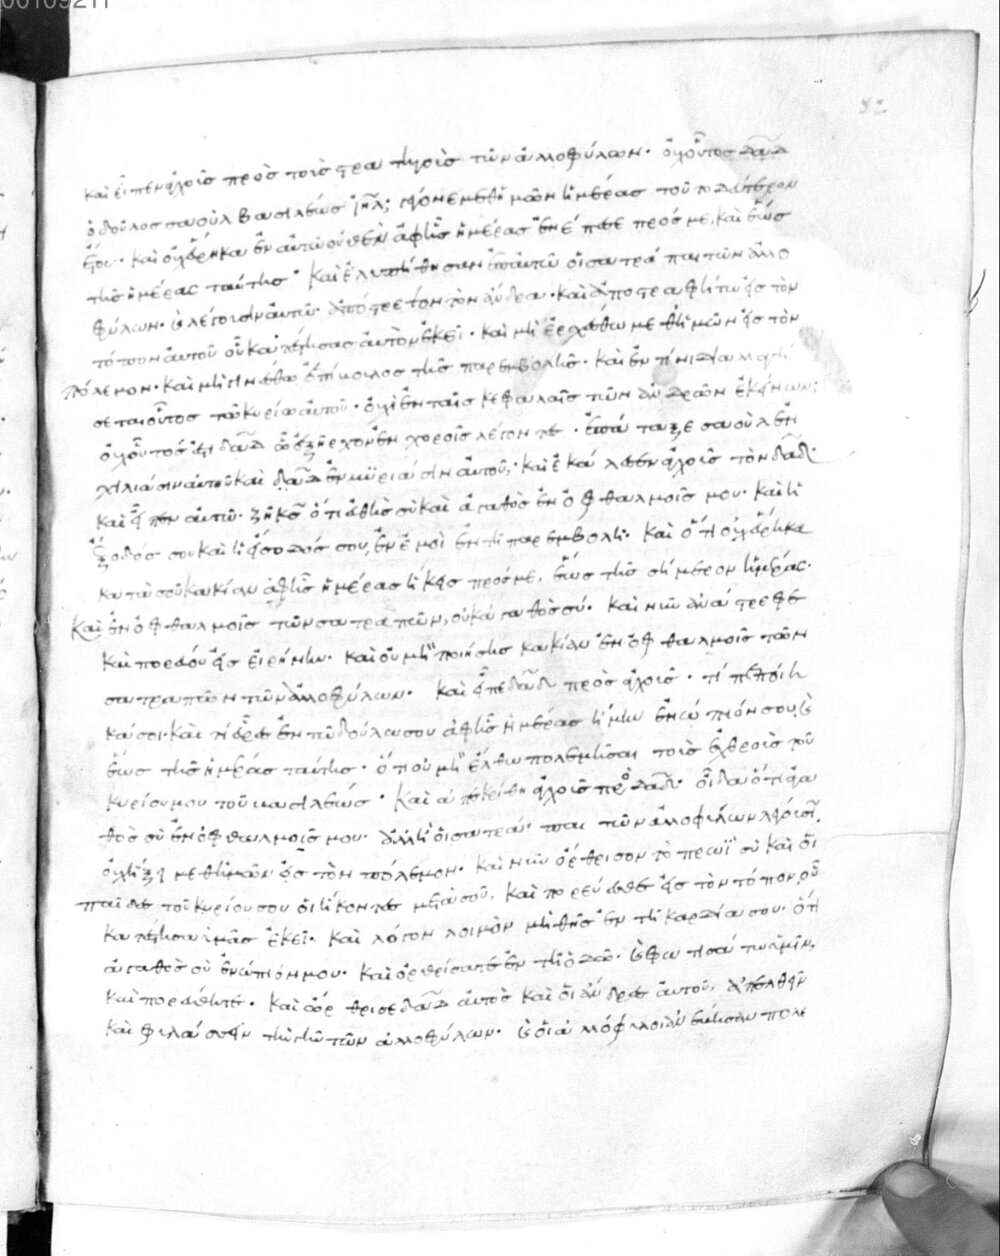 00109211
52
καὶ εἶπεν ἀγχοῖς πρὸς τοὺς στρατηγοὺς τῶν ἀλλοφύλων· οὐχ οὗτος δᾱδ
ὁ δοῦλος σαοὺλ βασιλέως ἰηλ; γέγονε μεθ' ἡμῶν ἡμέρας τοῦτο δεύτερον
ἔτος· καὶ οὐχ εὕρηκα ἐν αὐτῶ οὐθὲν ἀφ' ἧς ἡμέρας ἐνέπεσε πρός με, καὶ ἕως
τῆς ἡμέρας ταύτης· καὶ ἐλυπήθησαν ἐπ' αὐτῶ οἱ σατράπαι τῶν ἀλλο
φύλων· καὶ λέγουσιν αὐτῶ· ἀπόστρεψον τὸν ἄνδρα· καὶ ἀποστραφήτω εἰς τὸν
τόπον αὐτοῦ οὗ κατέστησας αὐτὸν ἐκεῖ· καὶ μὴ ἐρχέσθω μεθ' ἡμῶν εἰς τὸν
πόλεμον· καὶ μὴ γινέσθω ἐπίβουλος τῆς παρεμβολῆς· καὶ ἐν τίνι διαλλαγή
σεται οὗτος τῶ κυρίω αὐτοῦ· οὐχὶ ἐν ταῖς κεφαλαῖς τῶν ἀνδρῶν ἐκείνων;
οὐχ οὗτός ἐστι δᾱδ ὧ ἐξῆρχον ἐν χοροῖς λέγοντες· ἐπάταξε σαοὺλ ἐν
χιλιάσιν αὐτοῦ καὶ δᾱδ ἐν μυριάσιν αὐτοῦ· καὶ ἐκάλεσεν ἀγχοῖς τὸν δᾱδ·
καὶ εἶπεν αὐτῶ· ζῆ κς̄ ὅτι εὐθὴς σὺ καὶ ἀγαθὸς ἐν ὀφθαλμοῖς μου· καὶ ἡ
ἔξοδός σου καὶ ἡ εἴσοδός σου, ἐν ἐμοὶ ἐν τῆ παρεμβολῆ· καὶ ὅτι οὐχ εὕρηκα
κατὰ σοῦ κακίαν ἀφ' ἧς ἡμέρας ἥκεις πρός με, ἕως τῆς σήμερον ἡμέρας·
καὶ ἐν ὀφθαλμοῖς τῶν σατραπῶν, οὐκ ἀγαθὸς σύ· καὶ νῦν ἀνάστρεφε
καὶ πορεύου εἰς εἰρήνην· καὶ οὐ μὴ ποιήσης κακίαν ἐν ὀφθαλμοῖς τῶν
σατραπῶν τῶν ἀλλοφύλων· καὶ εἶπε δᾱδ πρὸς ἀγχοῖς· τί πεποίη
κά σοι· καὶ τί εὗρες ἐν τῶ δούλω σου ἀφ' ἧς ἡμέρας ἤμην ἐνώπιόν σου, καὶ
ἕως τῆς ἡμέρας ταύτης· ὅτι οὐ μὴ ἔλθω πολεμῆσαι τοὺς ἐχθροὺς τοῦ
κυρίου μου τοῦ βασιλέως· καὶ ἀπεκρίθη ἀγχοῖς πρὸς δᾱδ· οἶδα ὅτι ἀγα
θὸς σὺ ἐν ὀφθαλμοῖς μου· ἀλλ' ἢ οἱ σατράπαι τῶν ἀλλοφύλων λέγουσιν,
οὐχ ἥξει μεθ' ἡμῶν εἰς τὸν πόλεμον· καὶ νῦν ὄρθρισον τὸ πρωῒ σὺ καὶ οἱ
παῖδες τοῦ κυρίου σου οἱ ἥκοντες μετὰ σοῦ, καὶ πορεύεσθε εἰς τὸν τόπον οὗ
κατέστησα ὑμᾶς ἐκεῖ· καὶ λόγον λοιμὸν μὴ θῆς ἐν τῆ καρδία σου· ὅτι
ἀγαθὸς σὺ ἐνώπιόν μου· καὶ ὀρθρίσατε ἐν τῆ ὁδῶ· καὶ φωτισάτω ὑμῖν,
καὶ πορεύθητε· καὶ ὤρθρισε δᾱδ αὐτὸς καὶ οἱ ἄνδρες αὐτοῦ, ἀπελθεῖν
καὶ φυλάσσειν τὴν γῆν τῶν ἀλλοφύλων· καὶ οἱ ἀλλόφυλοι ἀνέβησαν πολε